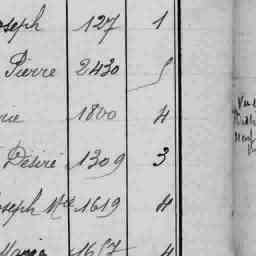 oseph 127 1
Pierre 2430 5
rie 1800 4
Désiré 1309 3
oseph Mel 1619 4
Maria 1657 4